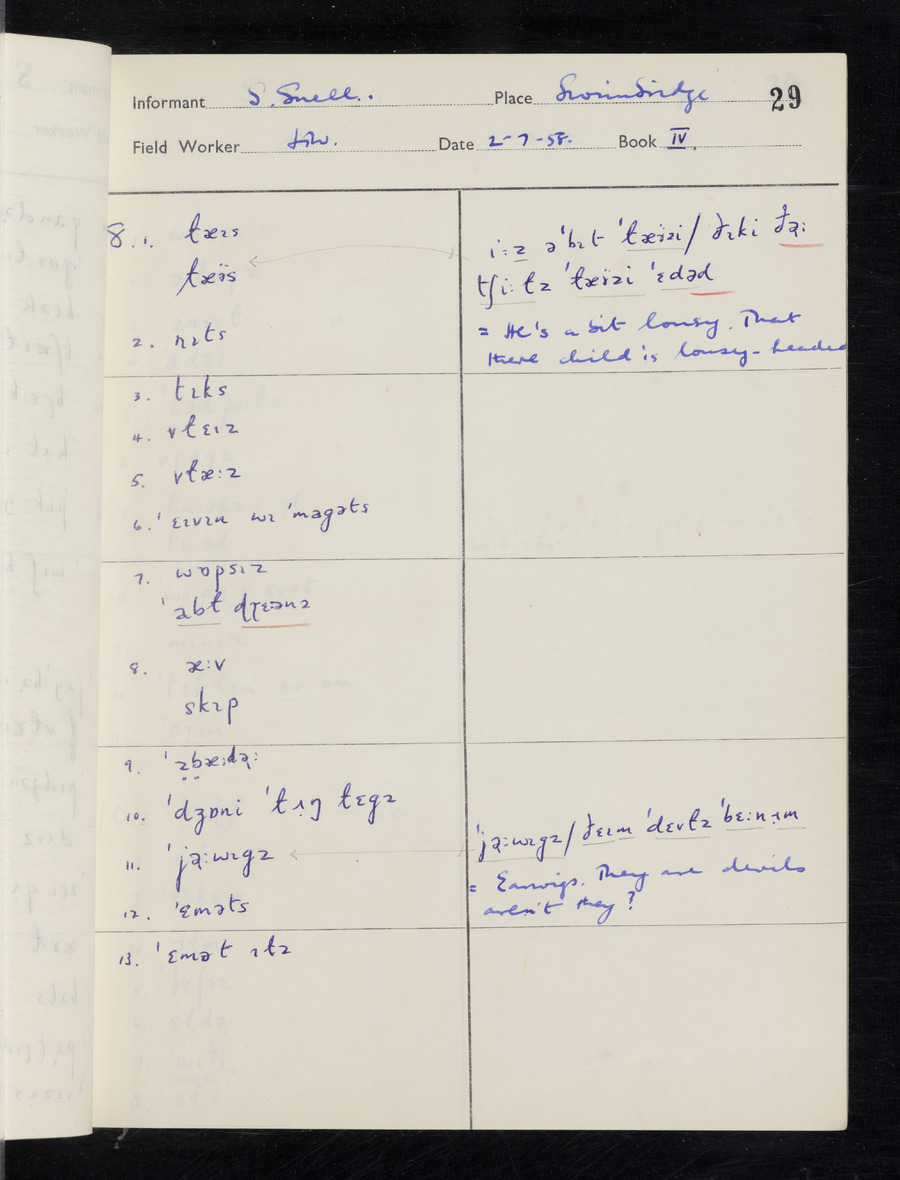 Informant S. Snell. Place Swimbridge 29
Field Worker Date 2-7-58. Book IV.
8.1. łæɪs
łæïs
2. nɪts
3. tɪks
4. vłɛɪz
5. vłæ:z
6. ˈɛɪvɪn wɪ ˈmagəts
7. wɒpsɪz
8. æ:v
skɪp
9.
10. ˈdʒɒni ˈłɪŋ łɛgz
11. ˈjə̣:wɪgz
12. ˈɛməts
13. ˈɛmət ɪłz
i:z əˈbɪt ˈłæïzi / ðɪki ðə̣:
tʃi:łz ˈłæïzi ˈɛdəd
= He's a bit lousy. That
there child is lousy-headed
ˈjə̣:wɪgz / ðɛɪm ˈdɛvłz ˈbɛ:nɪm
= Earwigs. They are devils
aren't they?